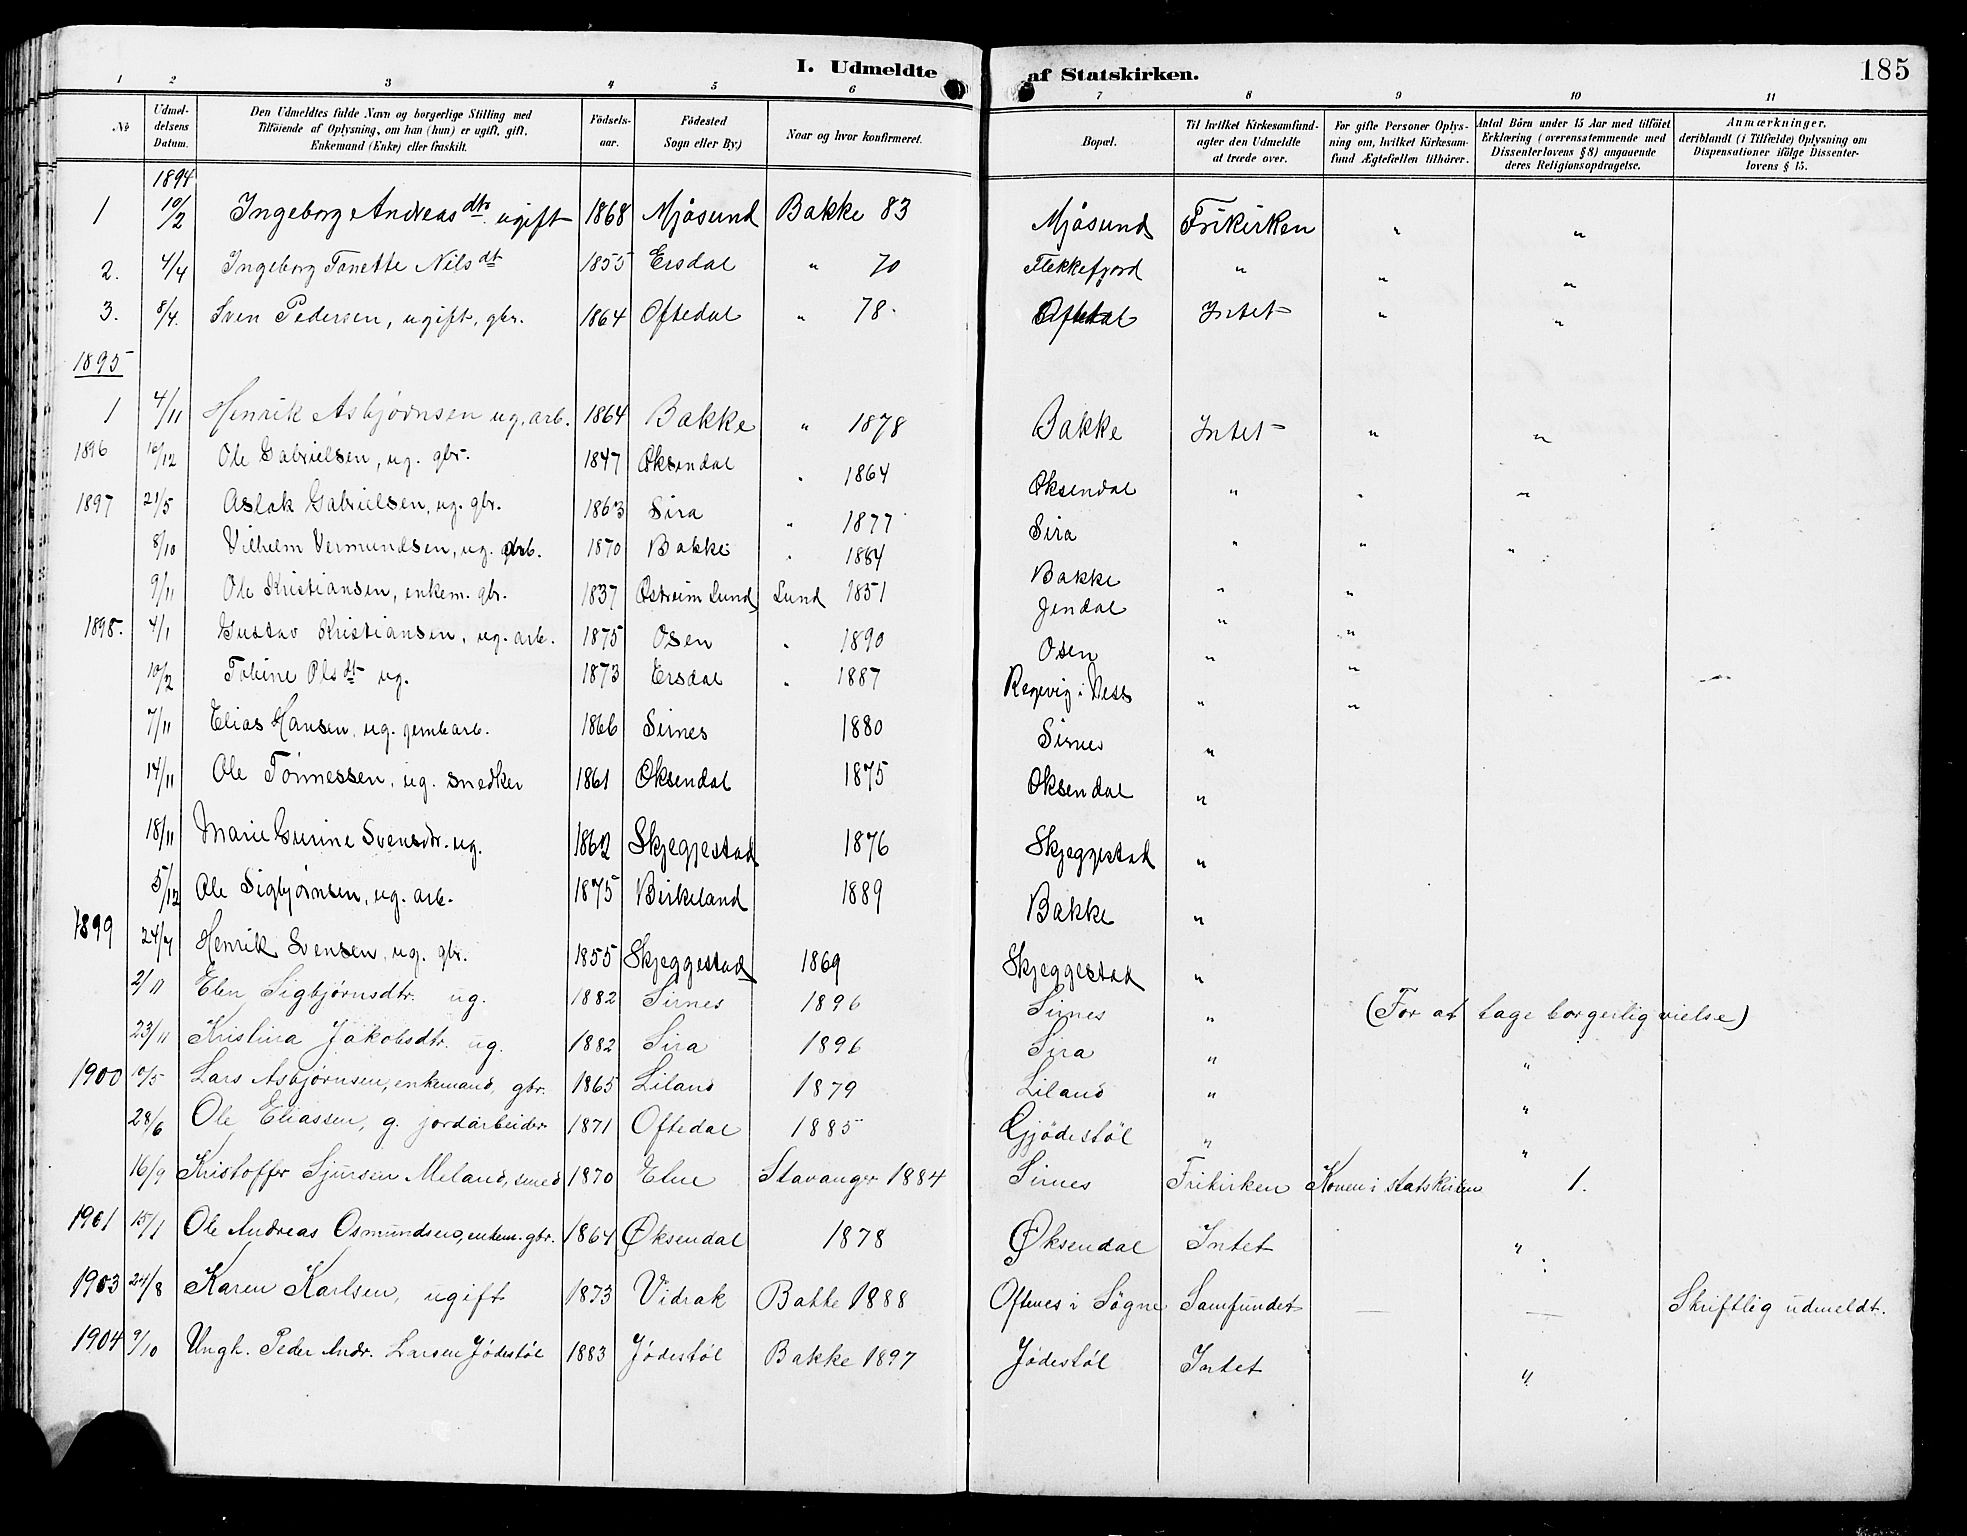 I. Udmeldte af Statskirken. 185
1 2 3 4 5 6 7 8 9 10 11
№ | Udmeldelsens Datum. | Den Udmeldtes fulde Navn og borgerlige Stilling med Tilføiende af Oplysning, om han (hun) er ugift, gift, Enkemand (Enke) eller fraskilt. | Fødselsaar. | Fødested Sogn eller By) | Naar og hvor konfirmeret. | Bopæl. | Til hvilket Kirkesamfund agter den Udmeldte at træde over. | For gifte Personer Oplysning om, hvilket Kirkesamfund Ægtefællen tilhører. | Antal Børn under 15 Aar med tilføiet Erklæring (overensstemmende med Dissenterlovens §8) angaaende deres Religionsopdragelse. | Anmærkninger, deriblandt (i Tilfælde) Oplysning om Dispensationer ifølge Dissenterlovens § 15.
1894
1 10/2 Ingeborg Andreasdtr. ugift 1868 Mjåsund Bakke 83 Mjåsund Frikirken " "
2. 4/4 Ingeborg Tonette Nilsdt 1855 Ersdal " 70 Flekkefjord " " "
3. 8/4. Sven Pedersen, ugift, gbr. 1864 Oftedal " 78. Oftedal Intet " "
1895
1 4/11 Henrik Asbjørnsen ug. arb. 1864 Bakke " 1878 Bakke Intet " "
1896 16/12 Ole Gabrielsen, ug. gbr. 1847 Øksendal " 1864 Øksendal " " "
1897 21/5 Aslak Gabrielsen, ug. gbr. 1863 Sira " 1877 Sira " " "
8/10 Vilhelm Vermundsen, ug. arb. 1870 Bakke " 1884 Bakke " "
9/11 Ole Kristiansen, enkem. gbr. 1837 Østreim Lund Lund 1851 Jendal " "
1898. 4/1 Gustav Kristiansen, ug. arb. 1875 Osen " 1890 Osen " "
10/2 Tobine Olsdt ug. 1873 Ersdal " 1887 Regevig i Ness " "
7/11 Elias Hansen, ug. jernbarb. 1866 Sirnes 1880 Sirnes "
14/11 Ole Tønnessen, ug. snedker 1861 Øksendal 1875 Øksendal "
18/11 Marie Gurine Svensdr. ug. 1862 Skjeggestad 1876 Skjeggestad "
5/12 Ole Sigbjørnsen, ug. arb. 1875 Birkeland 1889 Bakke "
1899 24/7 Henrik Svensen, ug. gbr. 1855 Skjeggestad 1869 Skjeggestad "
2/11 Elen Sigbjørnsdtr. ug. 1882 Sirnes 1896 Sirnes " (For at tage borgerlig vielse)
23/11 Kristina Jakobsdtr. ug. 1882 Sira 1896 Sira " "
1900 10/5 Lars Asbjørnsen, enkemand, gbr. 1865 Liland 1879 Liland " "
28/6 Ole Eliassen, g. jordarbeider 1871 Oftedal 1885 Gjødestøl " "
16/9 Kristoffer Sjursen Meland, smed 1870 Elne Stavanger 1884 Sirnes Frikirken Konen i statskirken 1.
1901 15/1 Ole Andreas Osmundsen, enkem. gbr. 1864 Øksendal 1878 Øksendal Intet "
1903 24/8 Karen Karlsen, ugift 1873 Vidrak Bakke 1888 Oftenes i Søgne Samfundet — — Skriftlig udmeldt.
1904 9/10 Ungk. Peder Andr. Larsen Jødestøl 1883 Jødestøl Bakke 1897 Jødestøl Intet "